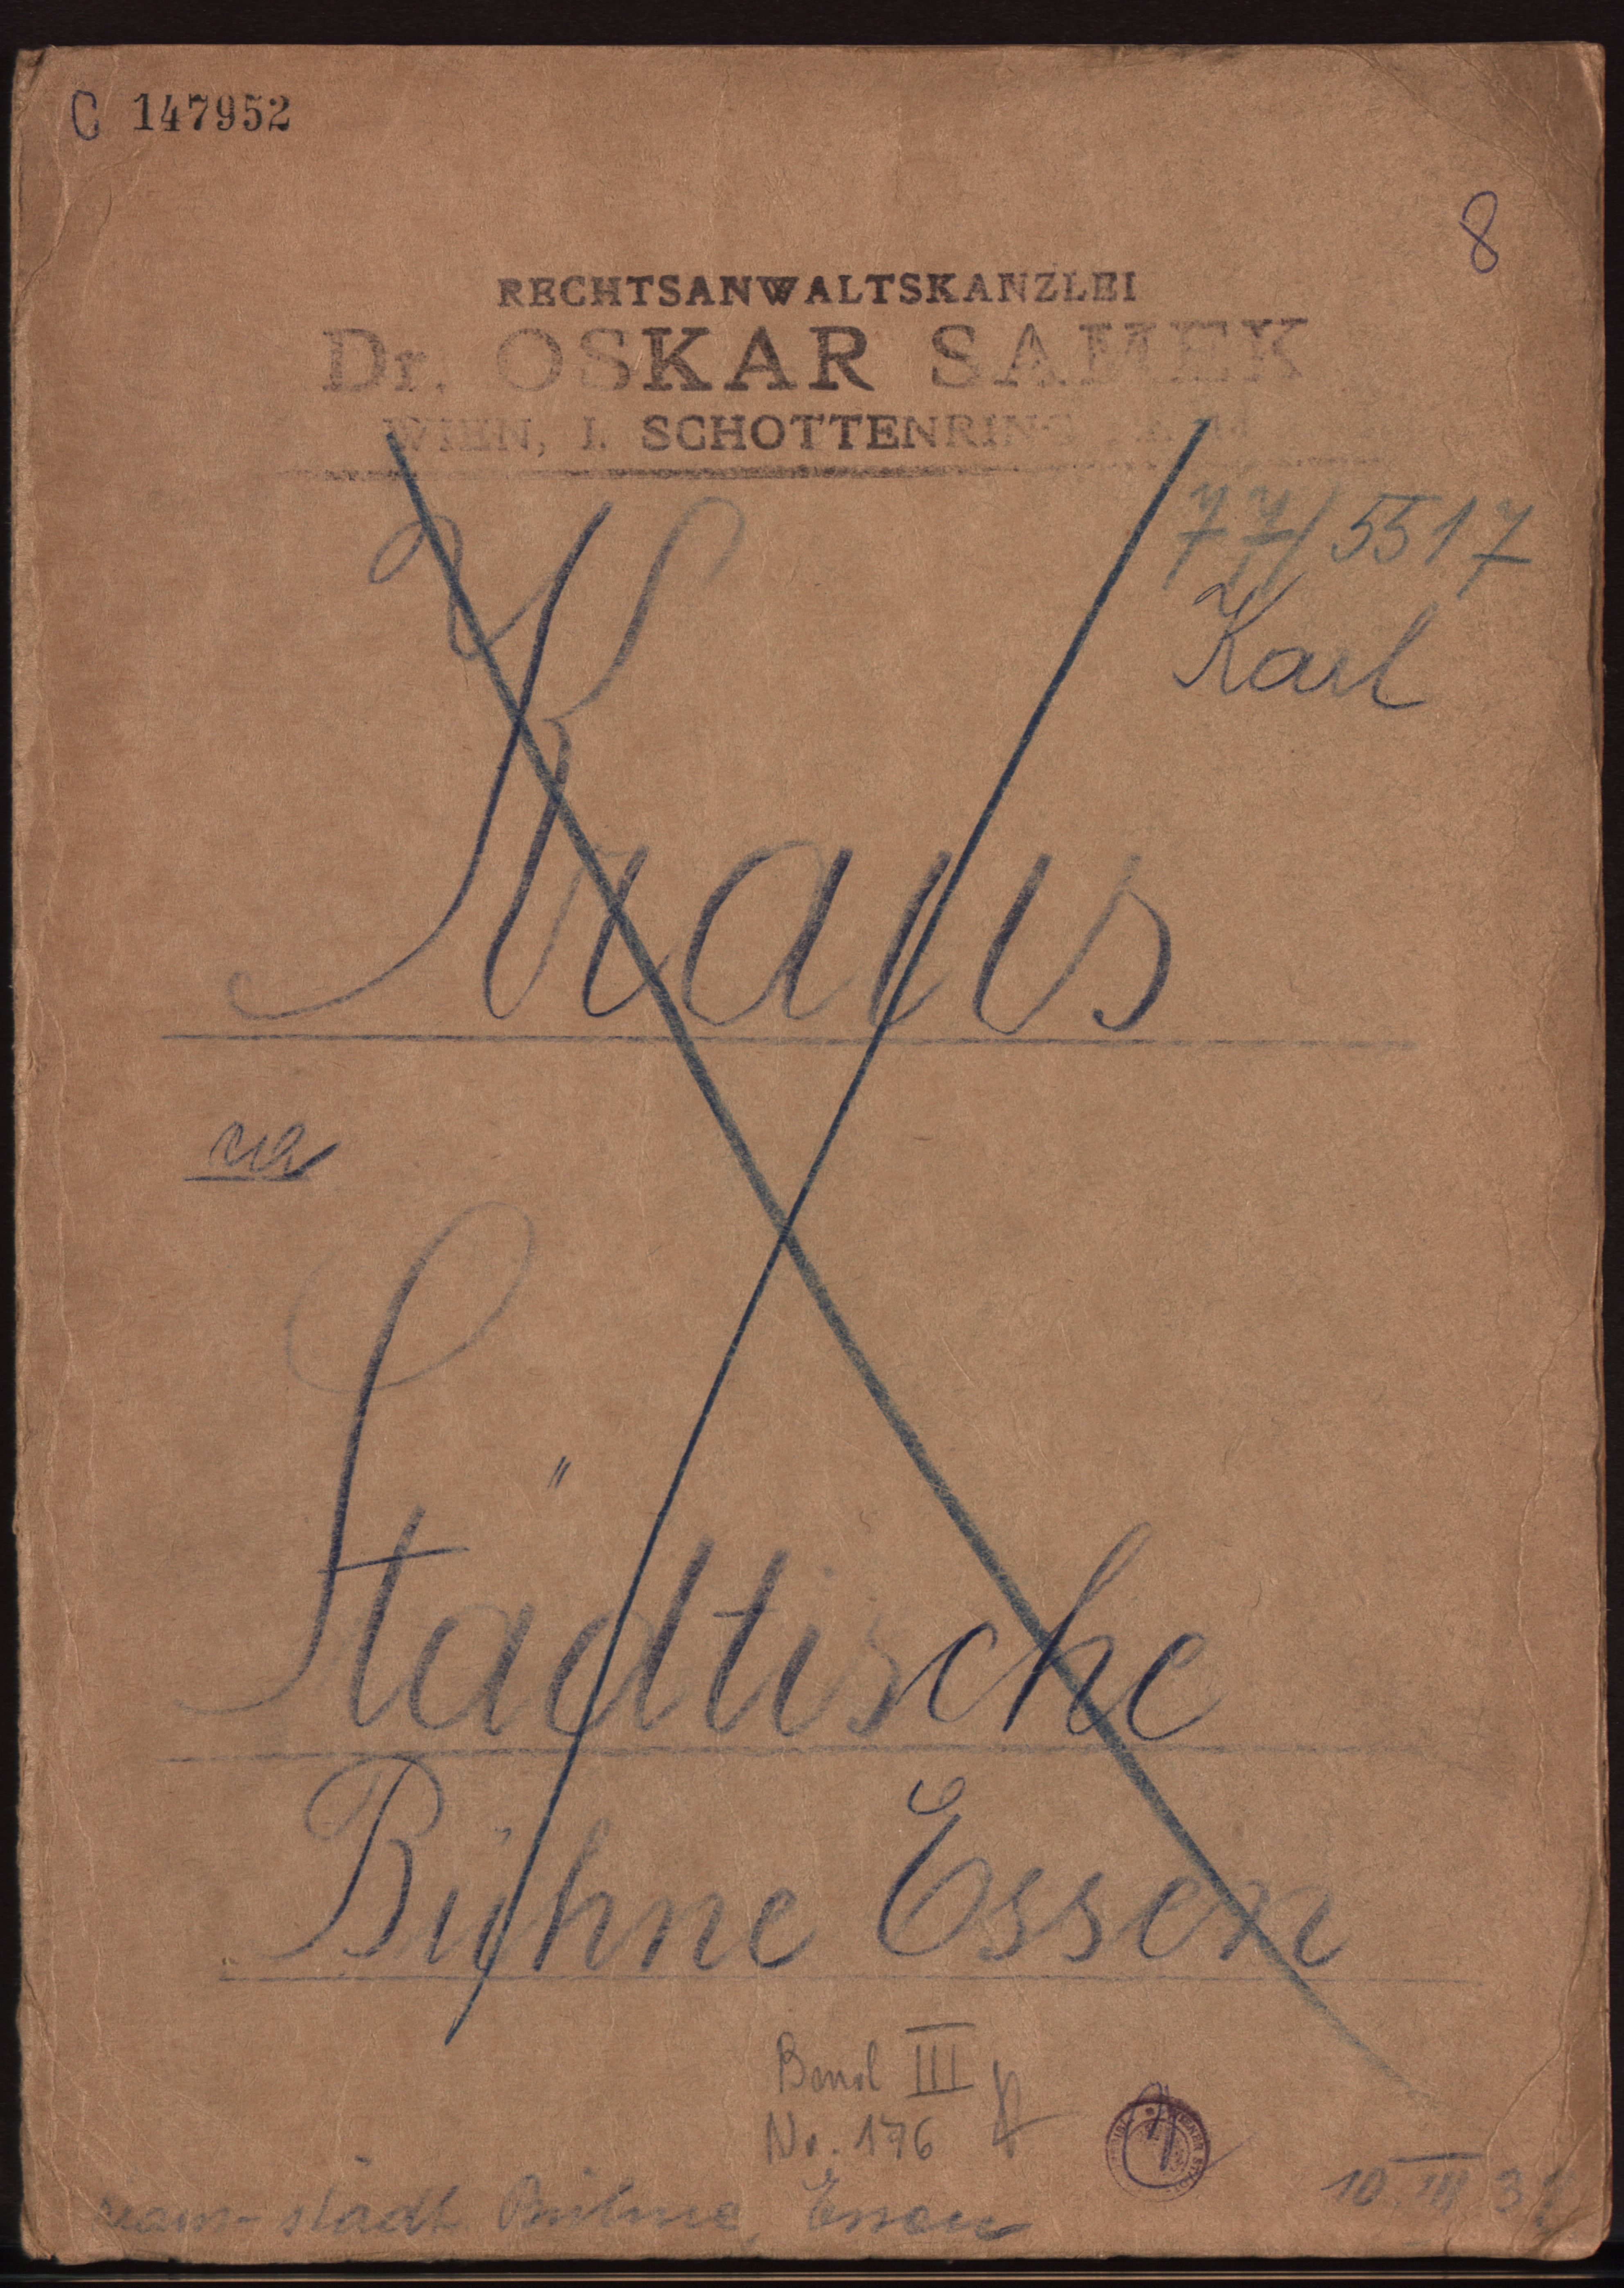 C 147952
8
RECHTSANWALTSKANZLEI
Dr. OSKAR SAMEK
WIEN, I. SCHOTTENRING
77/5517
Karl
Kraus
Städtische
Bühne Essen
Band III
No. 176
städt. Bühne, Essen
10 III 3